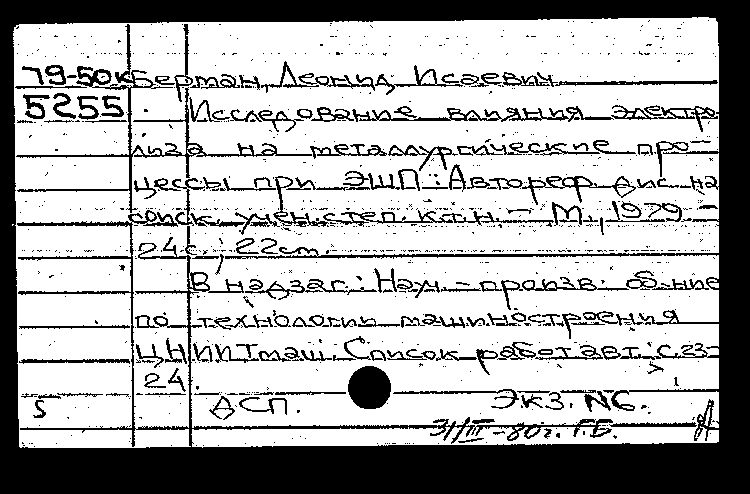 79-50к Берман, Леонид Исаевич
5255 Исследование влияния электро
лиза на металлургические про-
цессы при ЭШП: Автореф. дис. на
соиск. учен. степ. к.т.н. - М., 1979. -
24с.; 22см.
В надзаг.: Науч.-произв. об-ние
по технологии машиностроения
ЦНИИТмаш. Список работ авт.: с. 23-
24.
5 ДСП. Экз. №6.
31/III-80г. Г.Б.